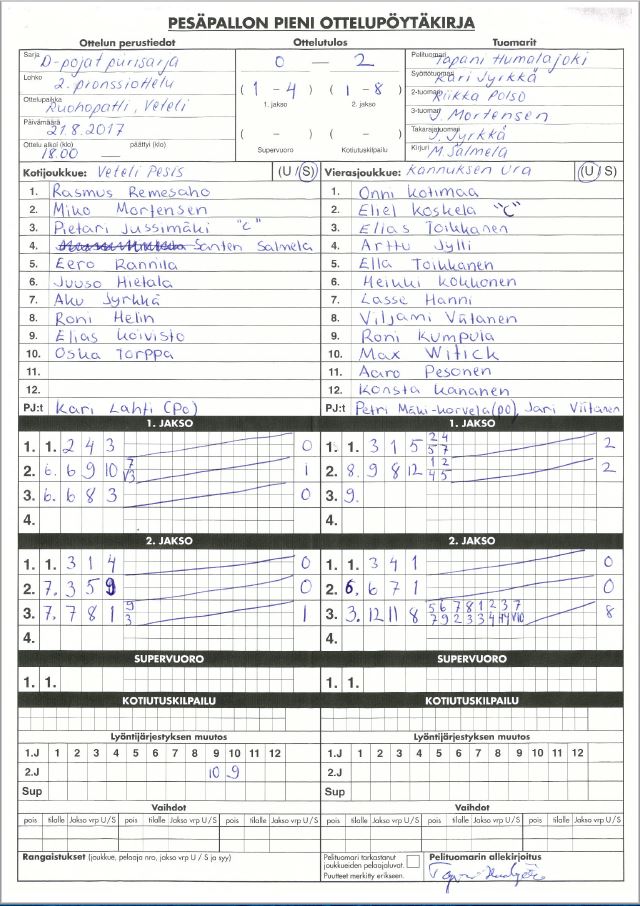 PESÄPALLON PIENI OTTELUPÖYTÄKIRJA
Ottelun perustiedot
Sarja D-pojat purisarja
Lohko 2. pronssiottelu
Ottelupaikka Ruohopatti, Veteli
Päivämäärä 21.8.2017
Ottelu alkoi (klo) päättyi (klo)
18.00 —
Ottelutulos
0 — 2
( 1 - 4 ) ( 1 - 8 )
1. jakso 2. jakso
( - ) ( - )
Supervuoro Kotiutuskilpailu
Tuomarit
Pelituomari Tapani Humalajoki
Syöttötuomari Kari Jyrkkä
2-tuomari Riikka Polso
3-tuomari J. Mortensen
Takarajatuomari J. Jyrkkä
Kirjuri M. Salmela
Kotijoukkue: Veteli Pesis (U/S)
1. Rasmus Remesaho
2. Miko Mortensen
3. Pietari Jussimäki "C"
4. Santen Salmela
5. Eero Rannila
6. Juuso Hietala
7. Aku Jyrkkä
8. Roni Helin
9. Elias Koivisto
10. Oska Torppa
11.
12.
PJ:t Kari Lahti (PO)
Vierasjoukkue: Kannuksen Ura (U/S)
1. Onni Kotimaa
2. Eliel Koskela "C"
3. Elias Toikkanen
4. Arttu Jylli
5. Ella Toikkanen
6. Heikki Kokkonen
7. Lasse Hanni
8. Viljami Viitanen
9. Roni Kumpula
10. Max Witick
11. Aaro Pesonen
12. Konsta Kananen
PJ:t Petri Mäki-Korvela (PO), Jari Viitanen
1. JAKSO
1. 1. 2 4 3 0
2. 6. 6 9 10 7 0
3. 6. 6 8 3 0
4.
1. JAKSO
1. 1. 3 1 5 2 4 5 7 2
2. 8. 9 8 12 1 2 4 5 2
3. 9.
4.
2. JAKSO
1. 1. 3 1 4 0
2. 7. 3 5 9 0
3. 7. 7 8 1 9 3 1
4.
2. JAKSO
1. 1. 3 4 1 0
2. 6. 6 7 1 0
3. 3. 12 11 8 5 6 7 8 1 2 3 7 8
4.
SUPERVUORO
1. 1.
SUPERVUORO
1. 1.
KOTIUTUSKILPAILU
KOTIUTUSKILPAILU
Lyöntijärjestyksen muutos
1.J 1 2 3 4 5 6 7 8 9 10 11 12
2.J 10 9
Sup
Lyöntijärjestyksen muutos
1.J 1 2 3 4 5 6 7 8 9 10 11 12
2.J
Sup
Vaihdot
pois tilalle Jakso vrp U/S pois tilalle Jakso vrp U/S pois tilalle Jakso vrp U/S
Vaihdot
pois tilalle Jakso vrp U/S pois tilalle Jakso vrp U/S pois tilalle Jakso vrp U/S
Rangaistukset (joukkue, pelaaja nro, jakso vrp U / S ja syy)
Pelituomari tarkastanut
joukkueiden pelaajaluvat.
Puutteet merkitty erikseen.
Pelituomarin allekirjoitus